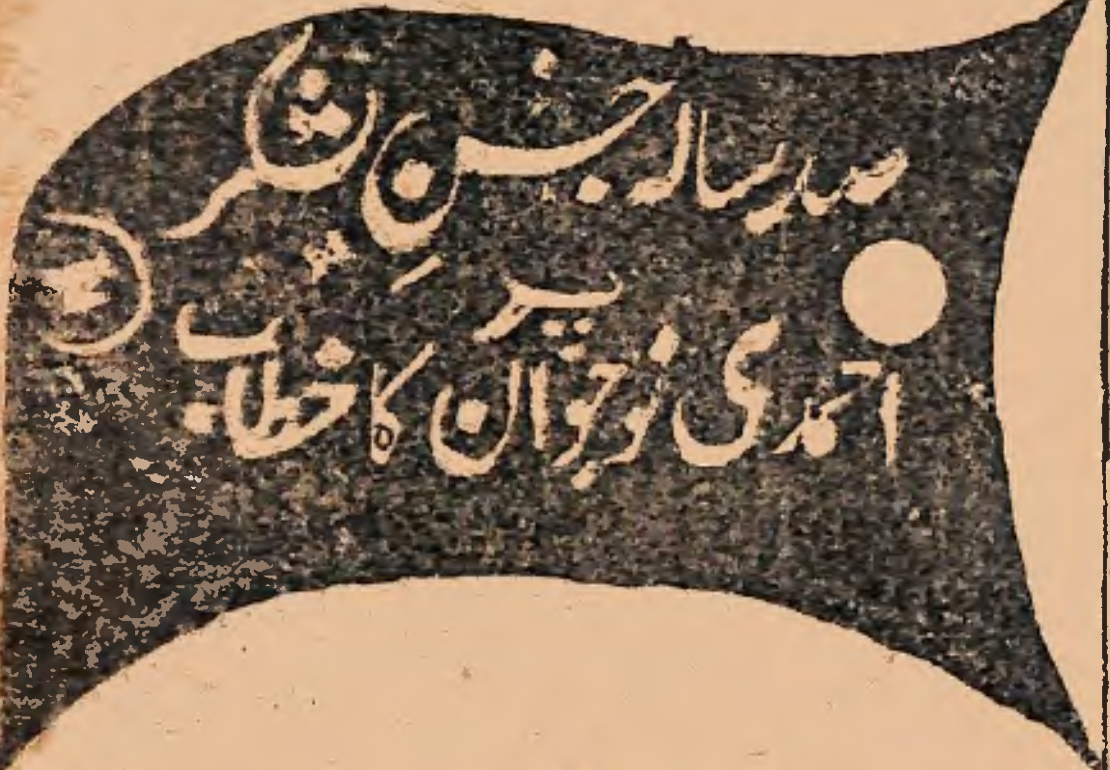 صد سالہ جشنِ تشکر
پر
احمدی نوجوان کا خطاب